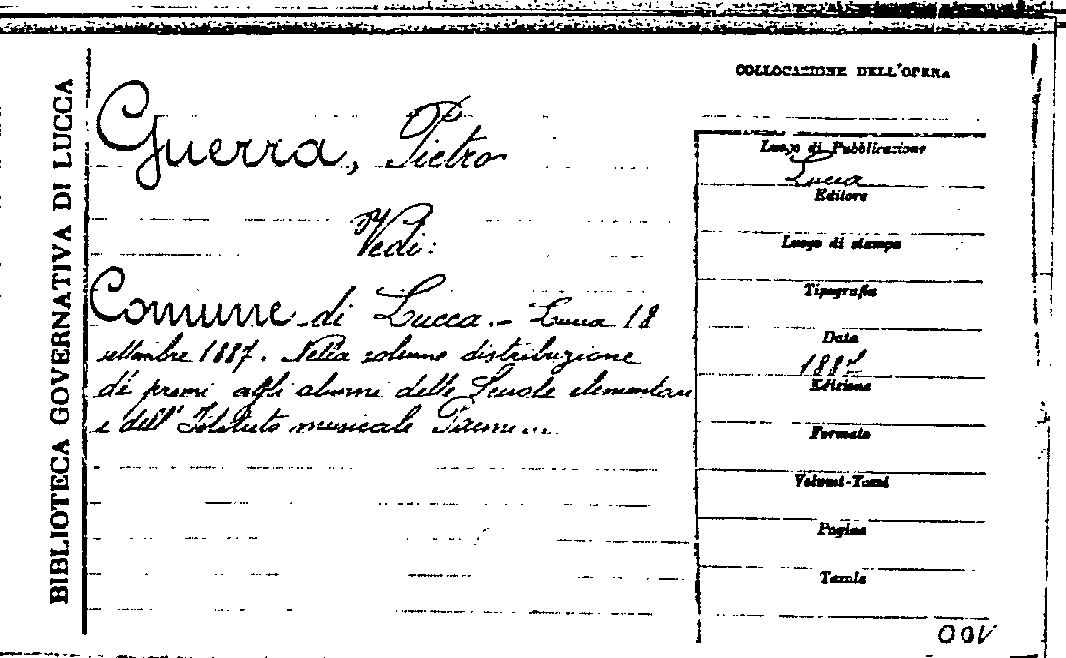 BIBLIOTECA GOVERNATIVA DI LUCCA
Guerra, Pietro
Vedi:
Comune di Lucca. - Lucca 18
settembre 1887. Nella solenne distribuzione
dé premi agli alunni delle Scuole elementari
e dell' Istituto musicale Pacini...
COLLOCAZIONE DELL'OPERA
Luogo di Pubblicazione
Lucca
Editore
Luogo di stampa
Tipografia
Data
1887
Edizione
Formato
Volumi-Tomi
Pagine
Tavole